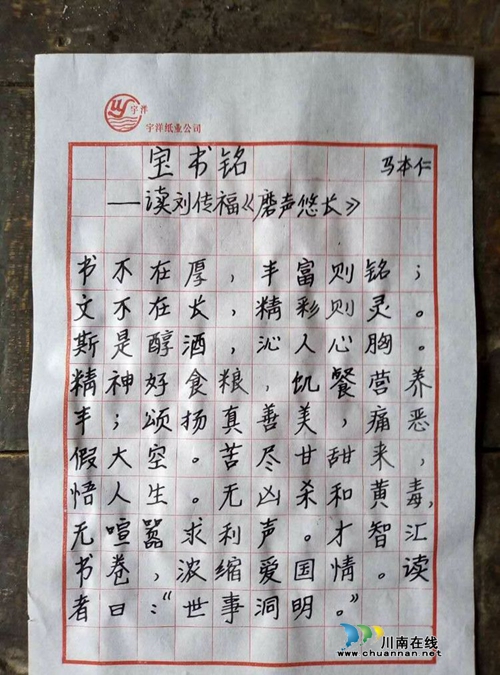 宇洋
宇洋纸业公司
宝书铭
马本仁
——读刘传福《磨声悠长》
书不在厚，丰富则铭；
文不在长，精彩则灵。
斯是醇酒，沁人心胸。
精神好食粮，饥餐营养
丰；颂扬真善美，痛恶
假大空。苦尽甘甜来，
悟人生。无凶杀和黄毒，
无喧嚣求利声。才智汇
书卷，浓缩爱国情。读
者曰：“世事洞明。”
川南在线
www.chuannan.net